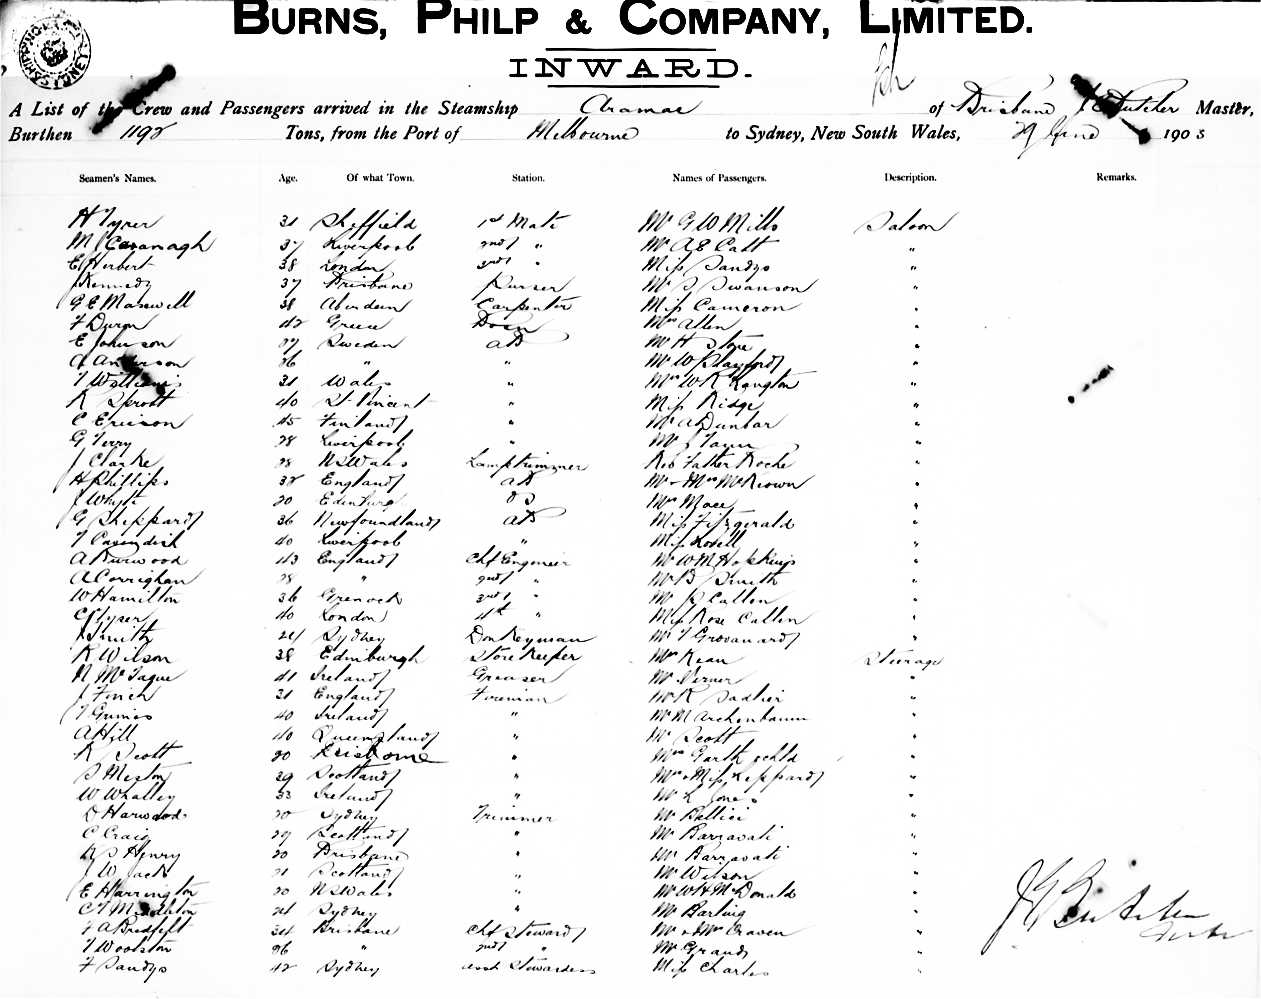 BURNS, PHILP & COMPANY, LIMITED.
INWARD.
A List of the Crew and Passengers arrived in the Steamship Aramac of Brisbane Master,
Burthen 1192 Tons, from the Port of Melbourne to Sydney, New South Wales, 29 June 1905
Seamen's Names. Age. Of what Town. Station. Names of Passengers. Description. Remarks.
H Tyrer 31 Sheffield 1st Mate Mr G W Mills Saloon
M Cavanagh 37 Liverpool 2nd " Mr A E Catt "
E Herbert 38 London 3rd " Miss Sandys "
J Kennedy 37 Brisbane Purser Mr S Swanson "
G E Maxwell 38 Aberdeen Carpenter Miss Cameron "
F Duron 42 Greece Bosn Mrs Allen "
E Johnson 27 Sweden AB Mr H Slope "
A Anderson 26 " " Mr W "
T Williams 31 Wales " Mrs W R Langton "
R Sprott 40 St Vincent " Miss Ridge "
E Ericson 45 Finland " Mr A Dunbar "
G Terry 28 Liverpool " Mr J "
J Clarke 28 N S Wales Lamptrimmer Rev Father Roche "
H Phillips 32 England AB Mr & Mrs McKeown "
J Whyte 20 Edinburg OS Mrs Mace "
G Sheppard 36 Newfoundland AB Miss Fitzgerald "
T Cavendish 40 Liverpool " Miss Lovell "
A Burwood 43 England Chf Engineer Mr W M Hopkins "
A Corrighan 28 " 2nd " Mr B Smith "
W Hamilton 36 Greenock 3rd " Mr R Callen "
C Tyser 40 London 4th " Miss Rose Callen "
J Smith 24 Sydney Donkeyman Mr T "
R Wilson 38 Edinburgh Storekeeper Mr Kean Steerage
N McTague 41 Ireland Greaser Mr Verner "
J Finch 31 England Fireman Mr R Sadlier "
T 40 Ireland " Mr Marchenbaum "
A Hill 40 Queensland " Mr Scott "
R Scott 20 Brisbane " Mrs Garth & chld "
S Meston 29 Scotland " Mrs & Miss Keppard "
W Whalley 33 Ireland " Mr L Jones "
D Harwood 20 Sydney Trimmer Mr "
C Craig 29 Scotland " Mr Barzavati "
R S Henry 20 Brisbane " Mr Barzavati "
J W Jack 21 Scotland " Mr Wilson "
E Harrington 20 N S Wales " Mr W H McDonald "
C T Middleton 21 Sydney " Mr Barling "
F A Bredfelt 34 Brisbane Chf Steward Mr & Mrs Craven "
T Woolston 26 " 2nd " Mr Grand "
F Sandys 42 Sydney Stewardess Miss Charles "